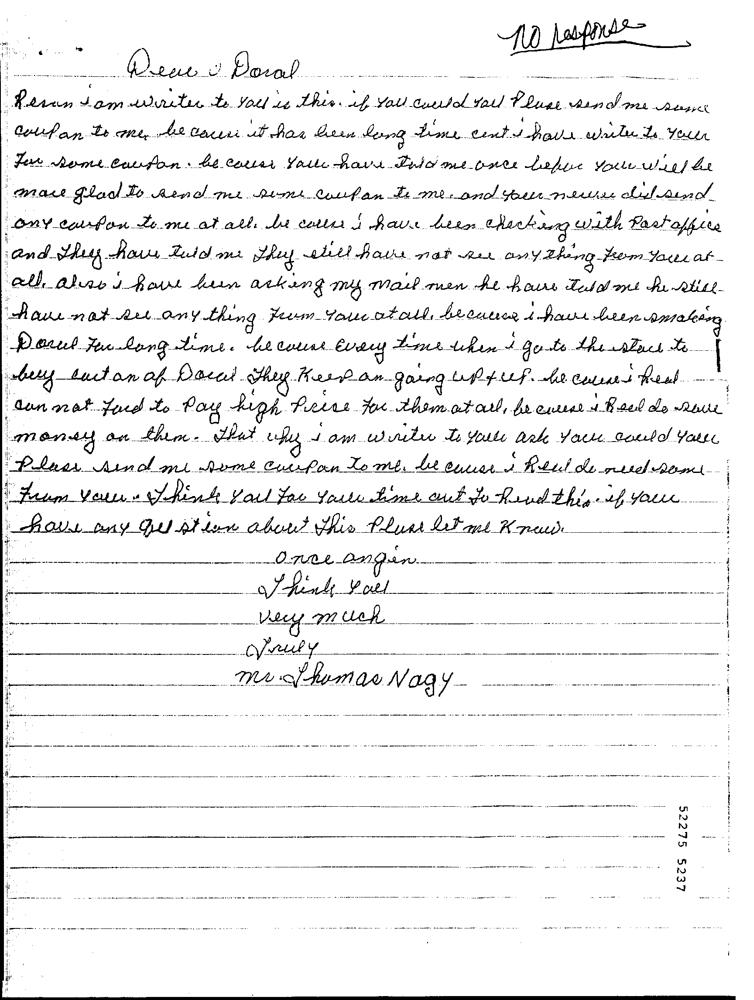 No response
Dear Doral
Resun i am writer to you is this. if you could you Pluse send me some
coupon to me, because it has been long time cent i have writer to your
for some coupon. be couse your have told me once befor your will be
more glad to send me some coupon to me. and your neuver did send
any coupon to me at all. be couse i have been checking with Post office
and They have tuld me They still have not see any thing from your at
all. also i have been asking my mail men he have tuld me he still
have not see any thing from your at all. because i have been smoking
Doral for long time. be couse every time when i go to the store to
buy carton of Doral They Keep on going up & up. be couse i Real
can not ford to Pay high Prise for them at all. be couse i Real do save
money on them. That why i am writer to your ask your could your
Pluse send me some coupon to me. because i Real do need some
from your. Think you for your time out to Read this. if your
have any question about This Pluse let me Know.
once angin
Think you
very much
Truly
Mr. Thomas Nagy
52275 5237